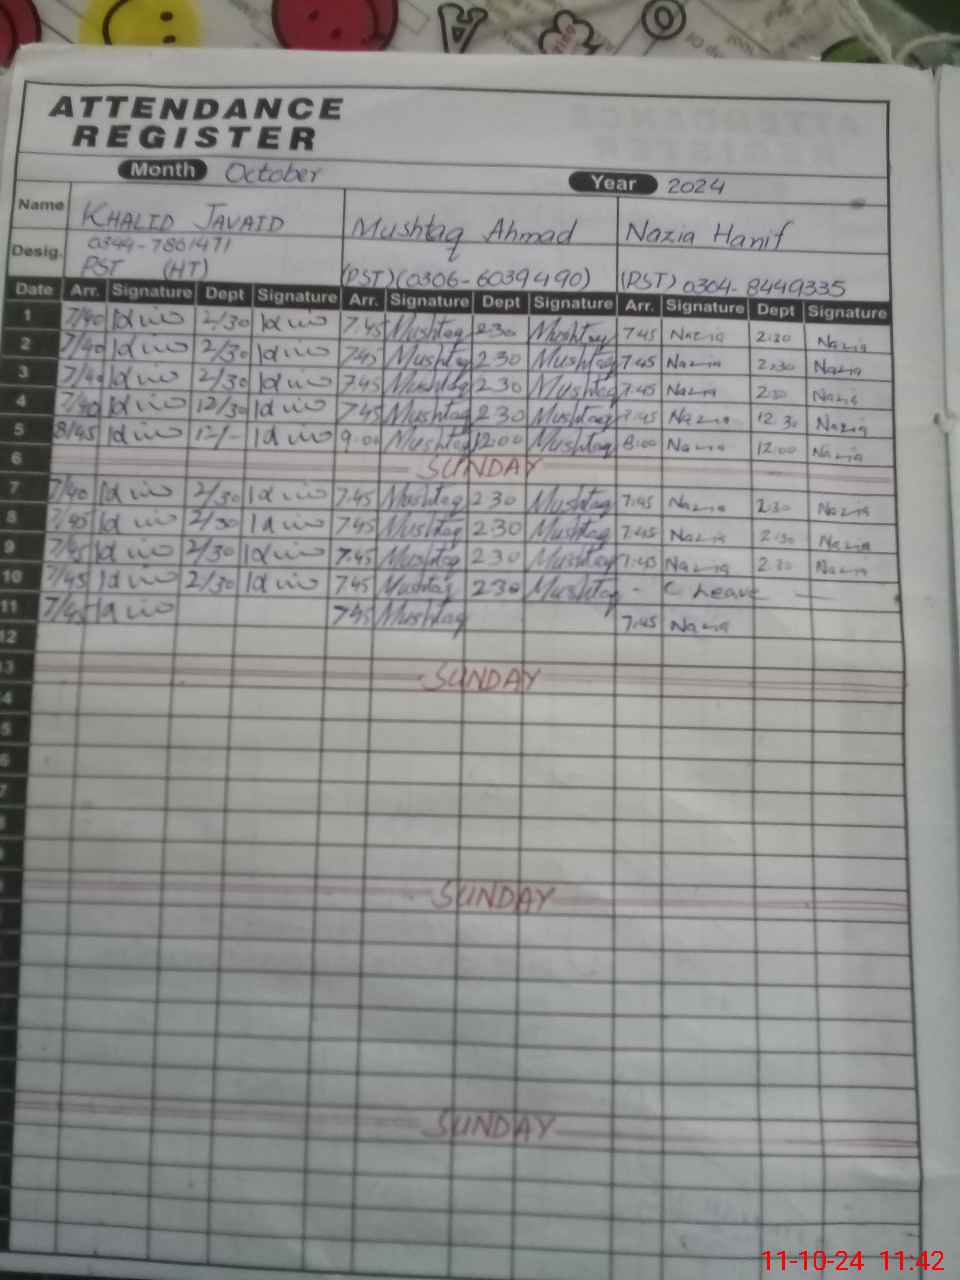 ATTENDANCE
REGISTER
Month October Year 2024
Name KHALID JAVAID Mushtaq Ahmad Nazia Hanif
Desig. 0344-7861471
PST (HT) (PST)(0306-6039490) (PST) 0304-8449335
Date Arr. Signature Dept Signature Arr. Signature Dept Signature Arr. Signature Dept Signature
1 7/40 2/30 7.45 Mushtaq 2.30 Mushtaq 7.45 Nazia 2.30 Nazia
2 7/40 2/30 7.45 Mushtaq 2.30 Mushtaq 7.45 Nazia 2.30 Nazia
3 7/40 2/30 7.45 Mushtaq 2.30 Mushtaq 7.45 Nazia 2.30 Nazia
4 7/40 12/30 7.45 Mushtaq 2.30 Mushtaq 7.45 Nazia 12.30 Nazia
5 8/45 12/- 9.00 Mushtaq 12.00 Mushtaq 8.00 Nazia 12.00 Nazia
6 SUNDAY
7 7/40 2/30 7.45 Mushtaq 2.30 Mushtaq 7.45 Nazia 2.30 Nazia
8 7/45 2/30 7.45 Mushtaq 2.30 Mushtaq 7.45 Nazia 2.30 Nazia
9 7/45 2/30 7.45 Mushtaq 2.30 Mushtaq 7.45 Nazia 2.30 Nazia
10 7/45 2/30 7.45 Mushtaq 2.30 Mushtaq - C Leave —
11 7/45 7.45 Mushtaq 7.45 Nazia
12
3 SUNDAY
4
5
6
7
SUNDAY
SUNDAY
11-10-24 11:42